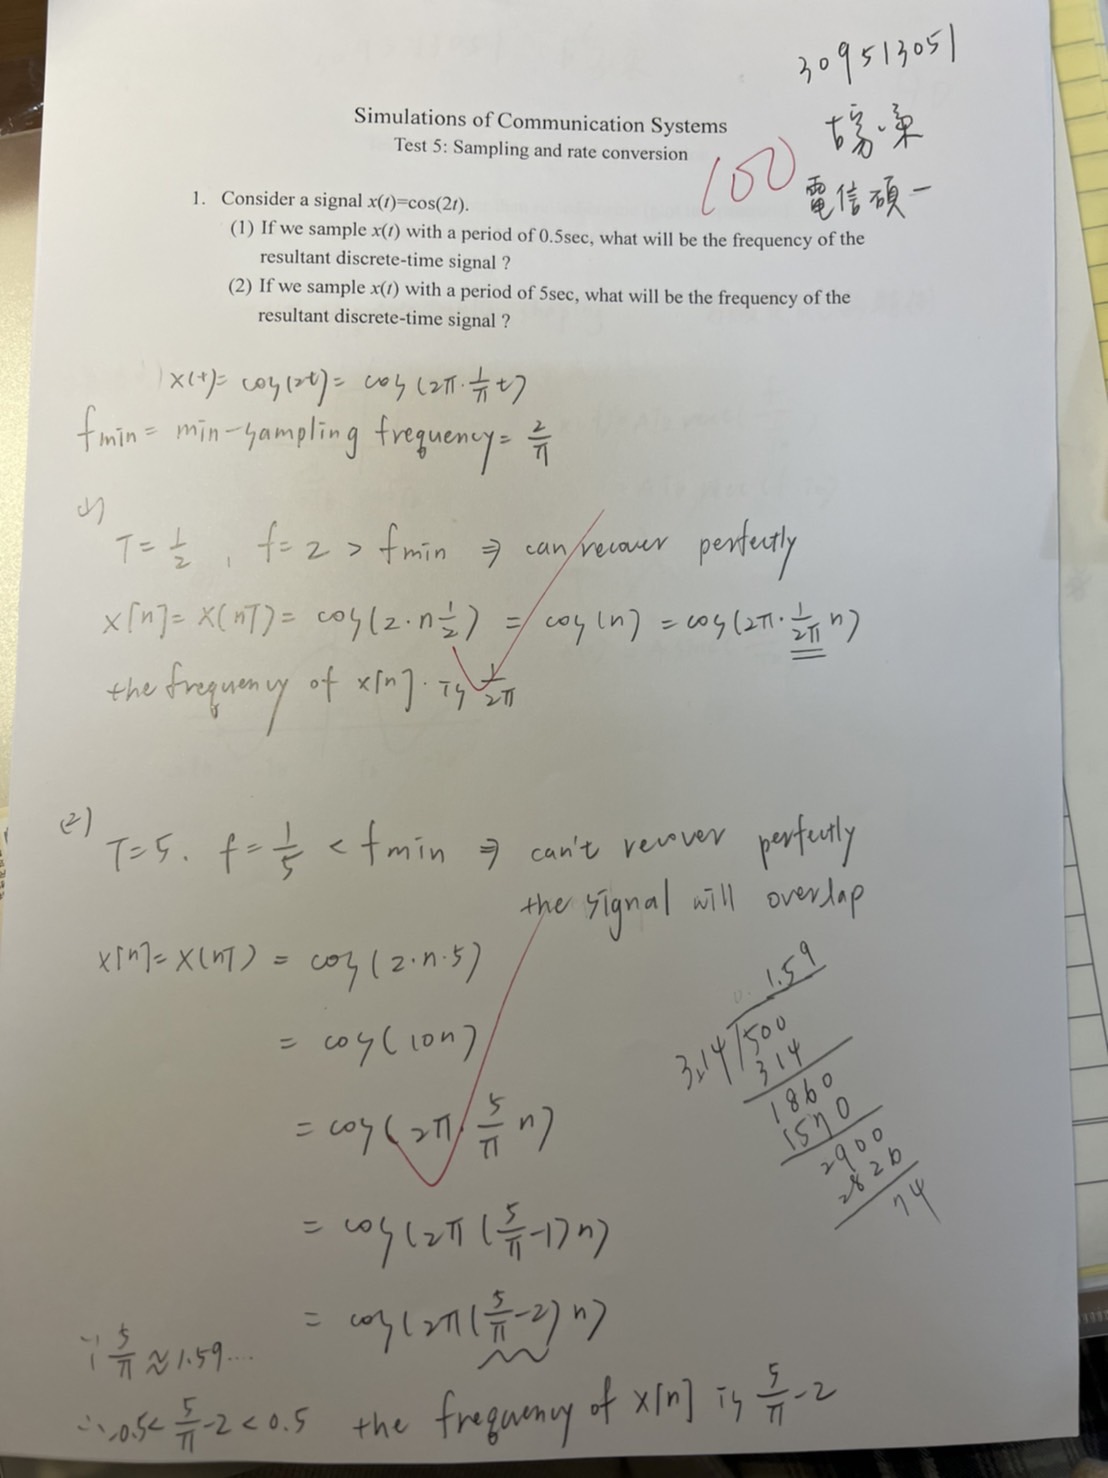 309513051
Simulations of Communication Systems
Test 5: Sampling and rate conversion
100
電信碩一
1. Consider a signal x(t)=cos(2t).
(1) If we sample x(t) with a period of 0.5sec, what will be the frequency of the
resultant discrete-time signal ?
(2) If we sample x(t) with a period of 5sec, what will be the frequency of the
resultant discrete-time signal ?
x(t)= cos(2t)= cos(2π·1/π t)
fmin = min-sampling frequency= 2/π
(1)
T= 1/2 , f= 2 > fmin ⇒ can recover perfectly
x[n]= x(nT)= cos(2·n 1/2) = cos(n) = cos(2π·1/2π n)
the frequency of x[n] is 1/2π
(2)
T=5. f= 1/5 < fmin ⇒ can't recover perfectly
the signal will overlap
x[n]= x(nT) = cos(2·n·5)
= cos(10n)
= cos(2π·5/π n)
= cos(2π(5/π-1)n)
= cos(2π(5/π-2)n)
1.59
3.14 500
314
1860
1570
2900
2826
74
∵ 5/π ≈ 1.59...
∴ -0.5< 5/π-2 < 0.5 the frequency of x[n] is 5/π-2